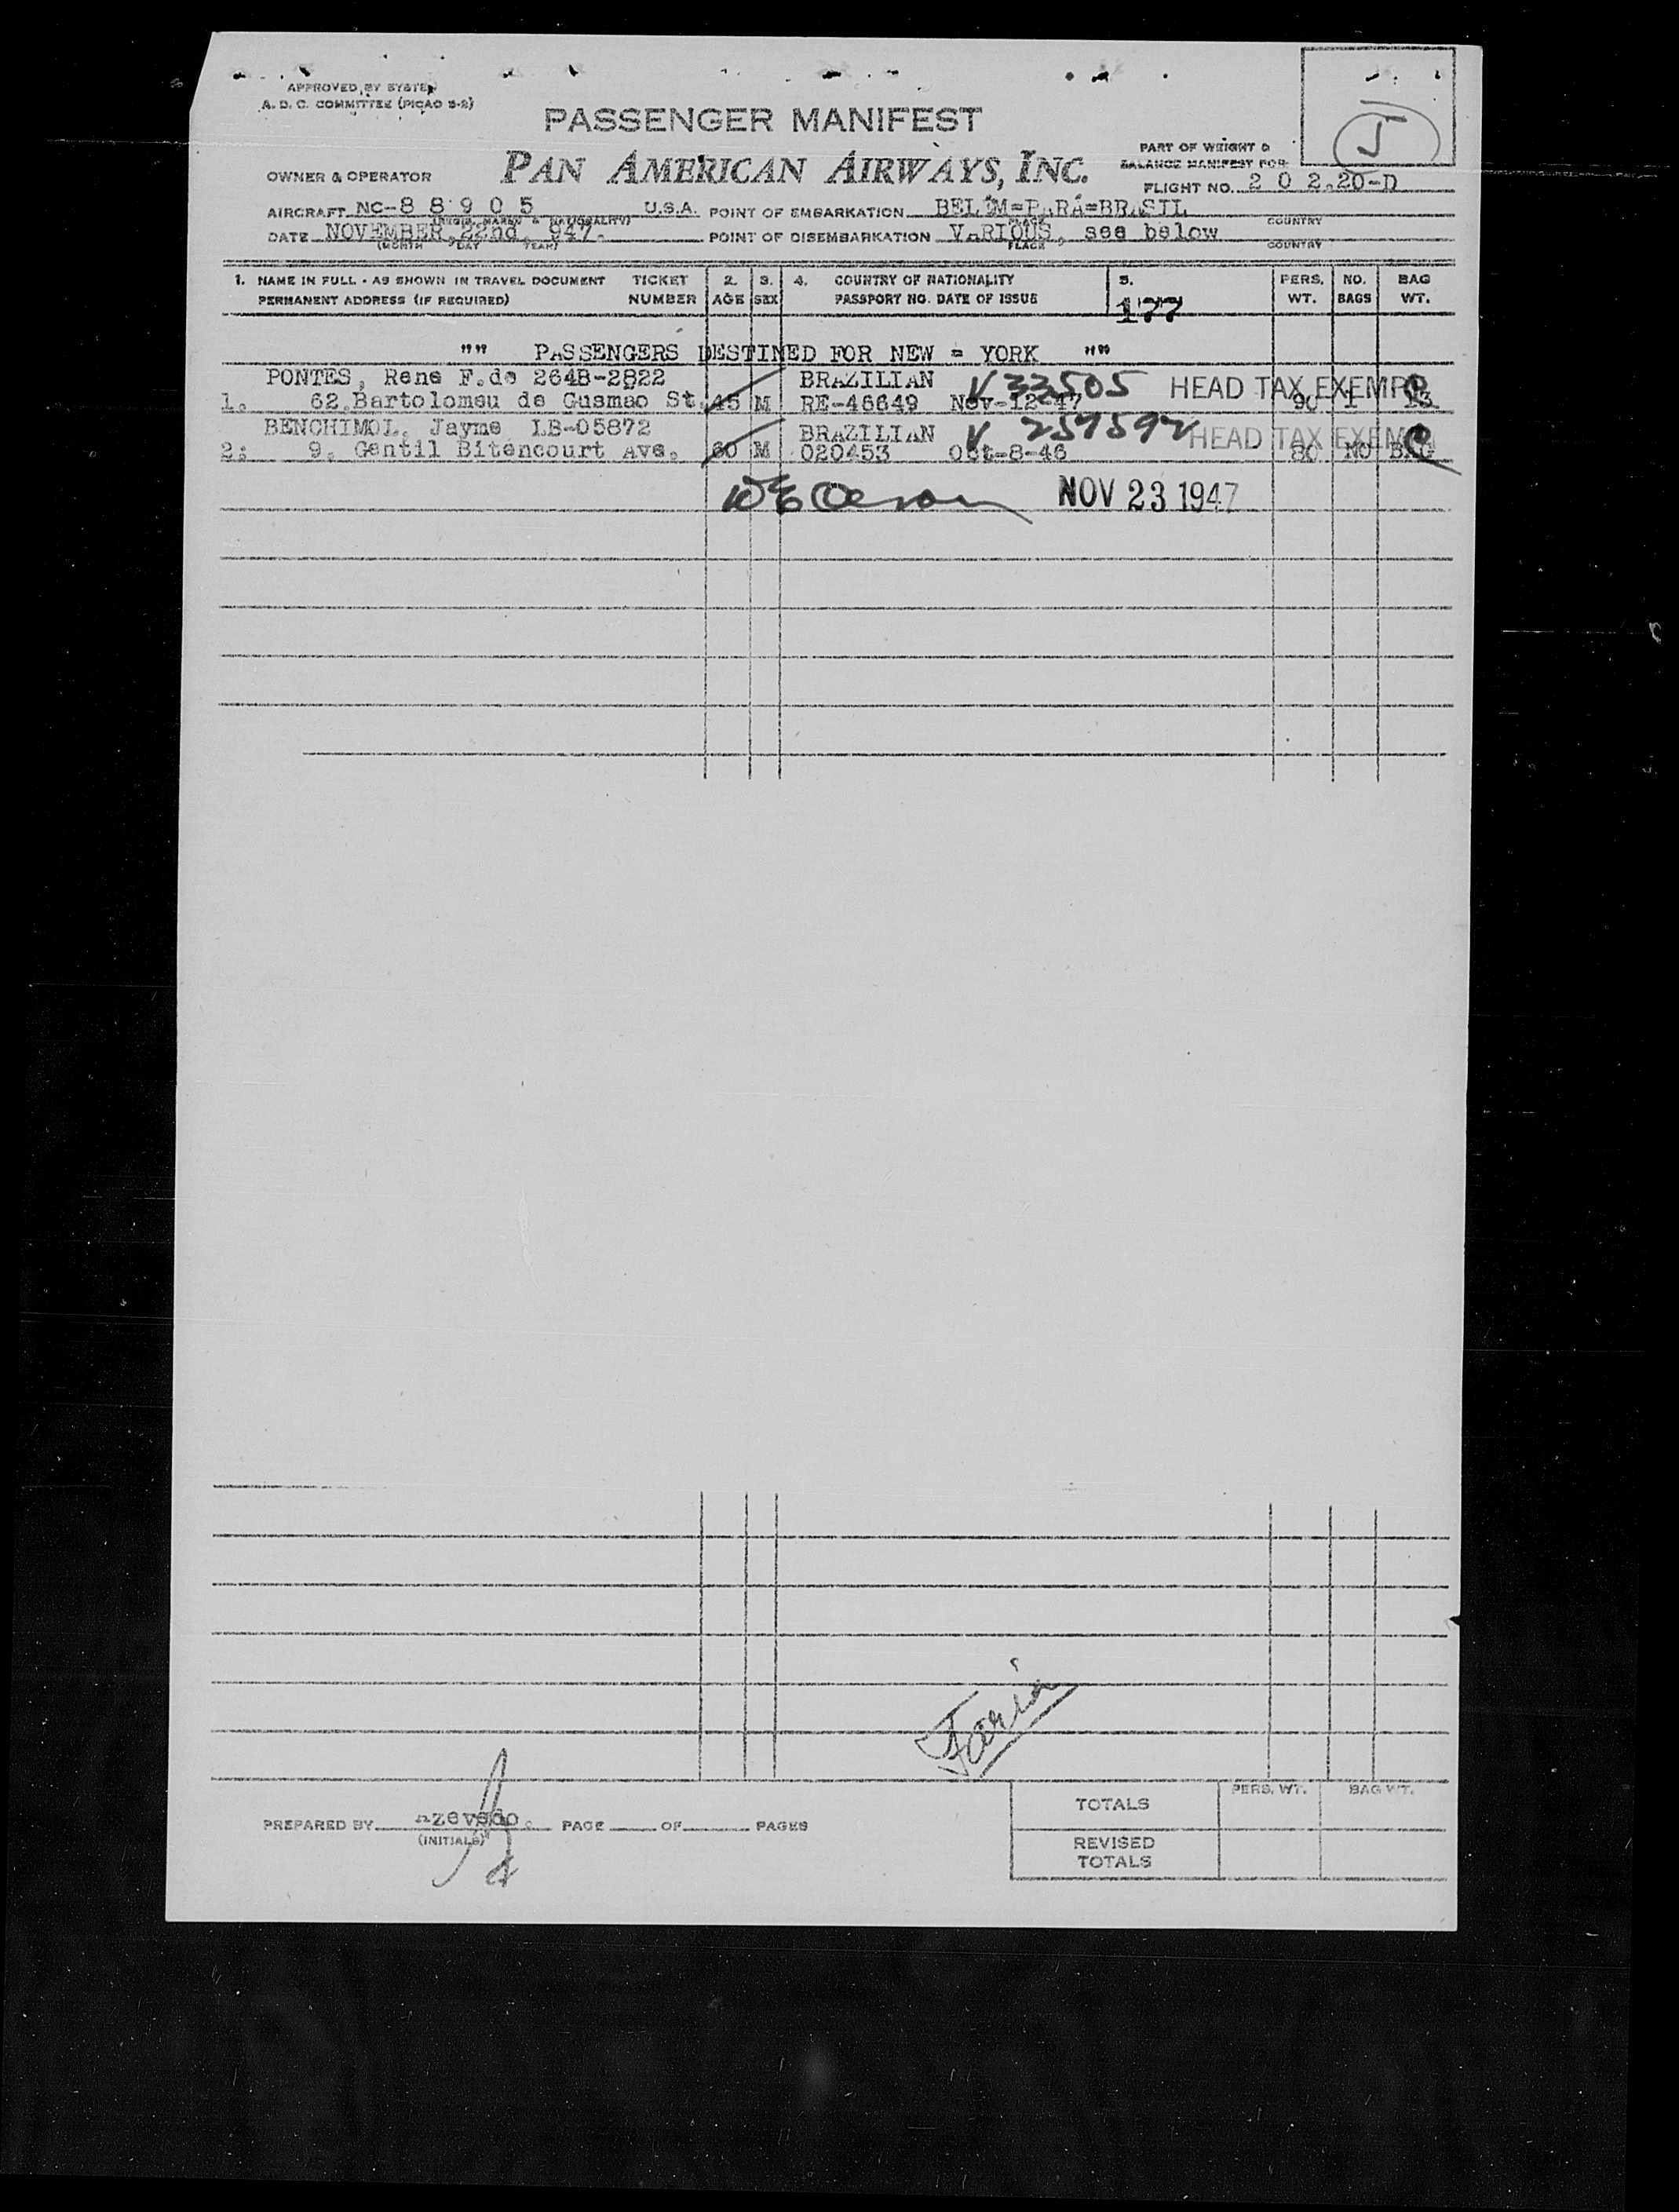 APPROVED BY SYSTEM
A. D. C. COMMITTEE (PICAO S-2)
PASSENGER MANIFEST
PAN AMERICAN AIRWAYS, INC.
J
PART OF WEIGHT &
BALANCE MANIFEST FOR
OWNER & OPERATOR
FLIGHT NO. 2 0 2.20-D
AIRCRAFT NC-8 8 9 0 5 U.S.A. POINT OF EMBARKATION BELEM=PARÁ=BRASIL
(REGIS. MARKS & NATIONALITY) PLACE COUNTRY
DATE NOVEMBER, 22nd, 947. POINT OF DISEMBARKATION VARIOUS, see below
(MONTH DAY YEAR) PLACE COUNTRY
1. NAME IN FULL - AS SHOWN IN TRAVEL DOCUMENT TICKET 2. 3. 4. COUNTRY OF NATIONALITY 5. PERS. NO. BAG
PERMANENT ADDRESS (IF REQUIRED) NUMBER AGE SEX PASSPORT NO. DATE OF ISSUE 177 WT. BAGS WT.
"" PASSENGERS DESTINED FOR NEW = YORK ""
PONTES, Rene F.de 264B-2822 BRAZILIAN V 33505 HEAD TAX EXEMPT
1. 62.Bartolomeu de Gusmao St. 45 M RE-46649 Nov-12-47 90 1 13
BENCHIMOL, Jayme LB-05872 BRAZILIAN V 257592 HEAD TAX EXEMPT
2; 9. Gentil Bitencourt Ave. 60 M 020453 Oct-8-46 80 NO BAG
NOV 23 1947
Faria
PREPARED BY Azevedo. PAGE OF PAGES
(INITIALS)
PERS. WT. BAG WT.
TOTALS
REVISED
TOTALS